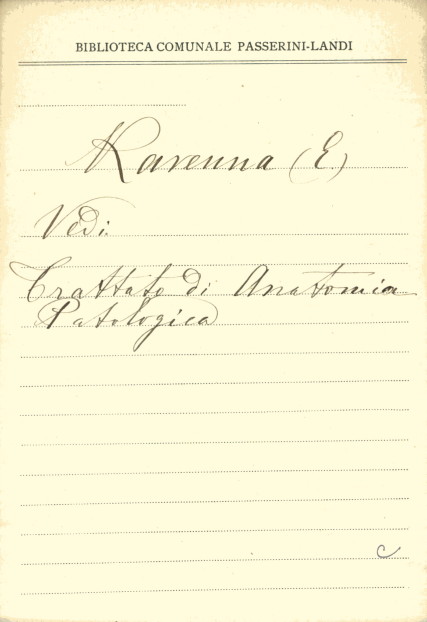 BIBLIOTECA COMUNALE PASSERINI-LANDI
Ravenna (E.)
Vedi:
Trattato di Anatomia
Patologica
c